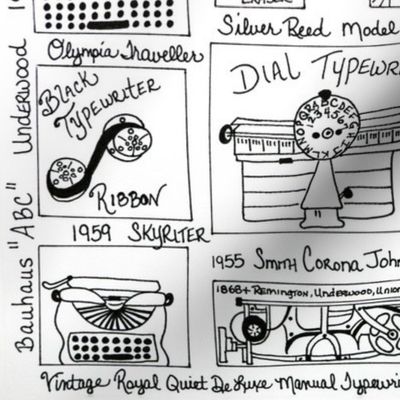 ERASER
Silver Reed Model
Olympia Traveller
BLACK
TYPEWRITER
RIBBON
DIAL TYPEWRI
ABCDEFG
23456
1959 SKYRITER
1955 SMITH CORONA JOHN
1868+ REMINGTON, UNDERWOOD, UNION
Bauhaus "ABC" Underwood 19
Vintage Royal Quiet De Luxe Manual Typewri